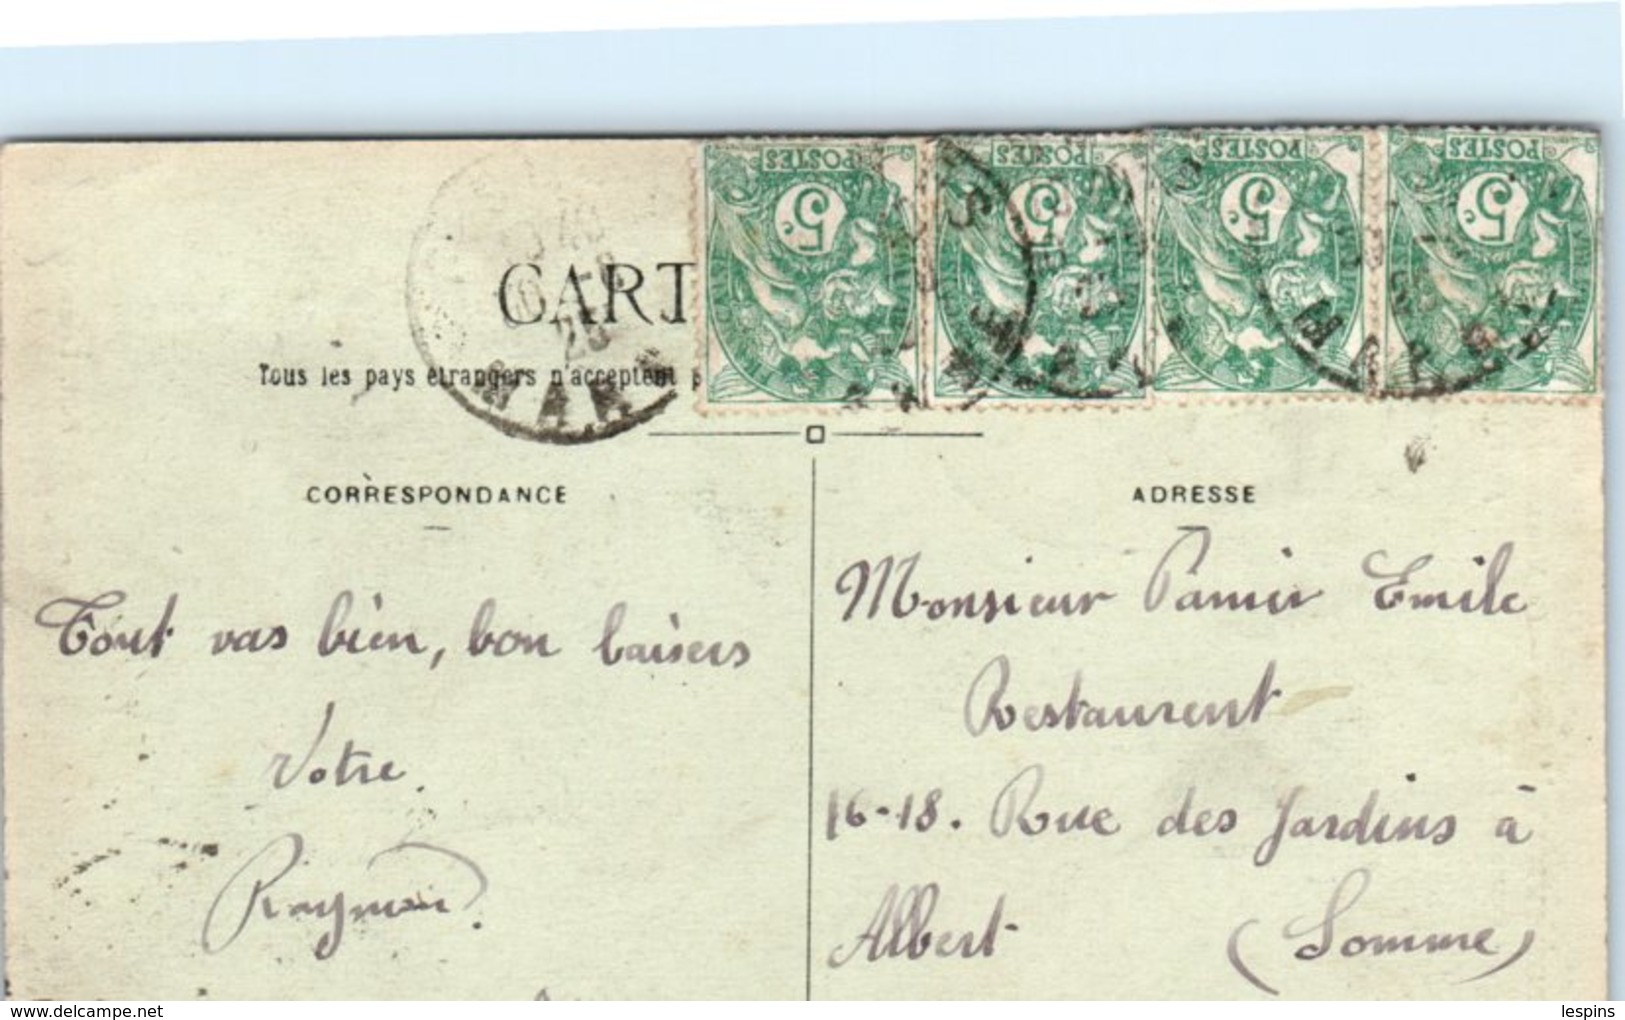 CART
Tous les pays étrangers n'acceptent p
POSTES
5c
POSTES
5c
POSTES
5c
POSTES
5c
CORRESPONDANCE
ADRESSE
Tout vas bien, bon baisers
Votre
Raymon
Monsieur Pamir Emile
Restaurent
16-18. Rue des Jardins à
Albert (Somme)
delcampe.net
lespins